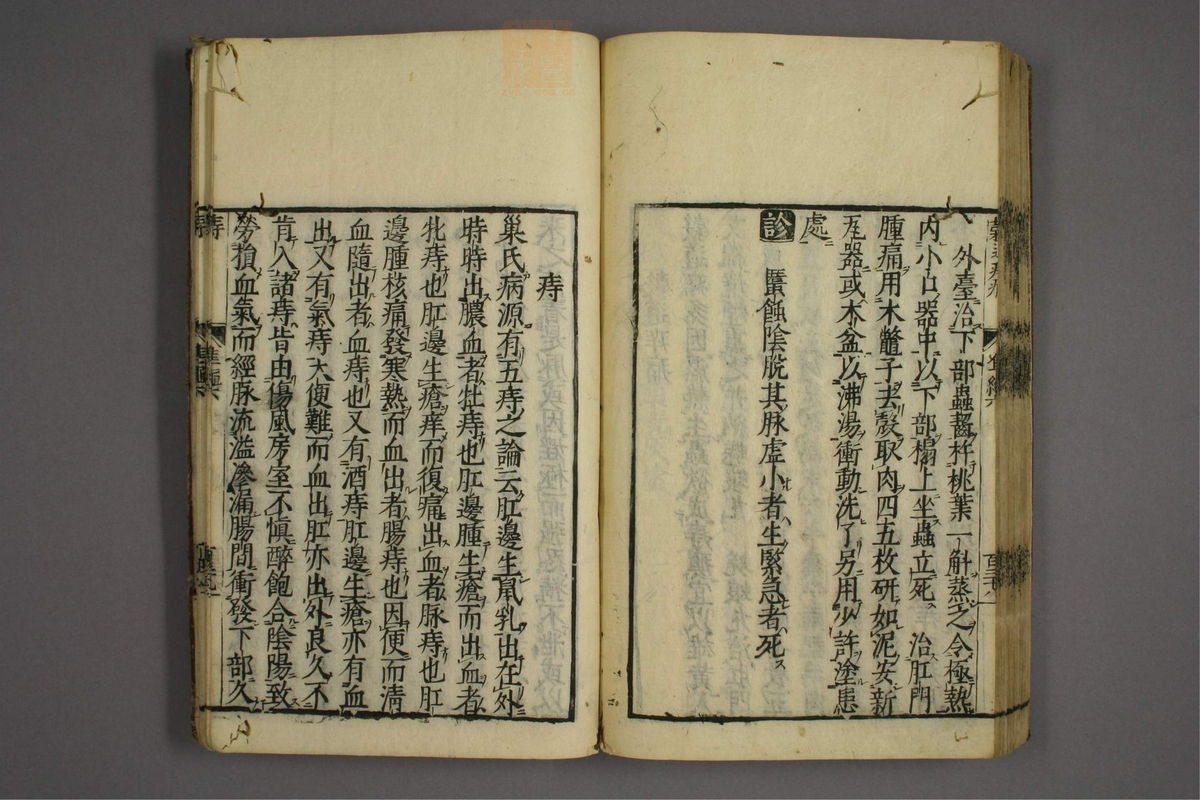 外臺治下部蟲齧杵桃葉一斛蒸之令極熱
內小口器中以下部榻上坐蟲立死 治肛門
腫痛用木鼈子去殼取肉四五枚研如泥安新
瓦器或木盆以沸湯衝動洗了另用少許塗患
處
診 䘌蝕陰脫其脉虛小者生緊急者死
痔
巢氏病源有五痔之論云肛邊生鼠乳出在外
時時出膿血者牡痔也肛邊腫生瘡而出血者
牝痔也肛邊生瘡痒而復痛出血者脉痔也肛
邊腫核痛發寒熱而血出者腸痔也因便而清
血隨出者血痔也又有酒痔肛邊生瘡亦有血
出又有氣痔大便難而血出肛亦出外良久不
肯入諸痔皆由傷風房室不慎醉飽合陰陽致
勞損血氣而經脉流溢滲漏腸間衝發下部久